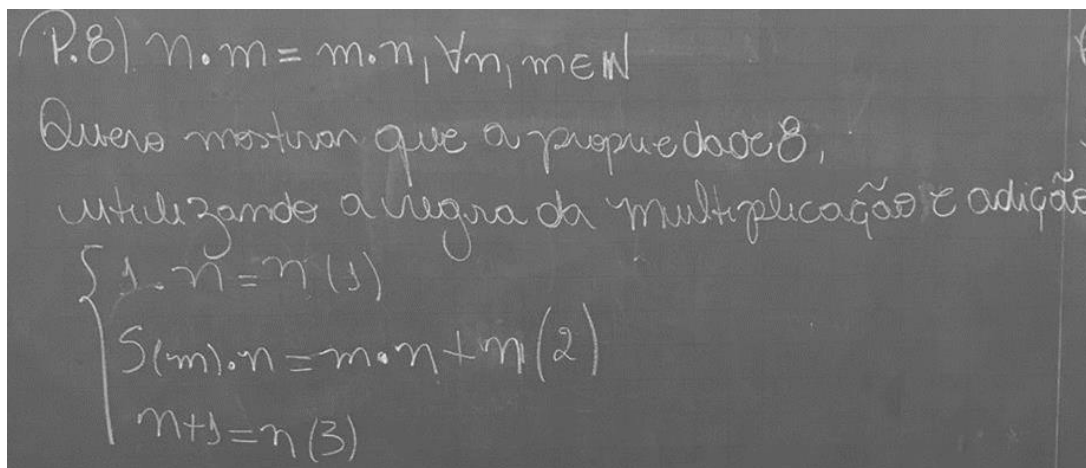 P.8) n·m = m·n, ∀n, m∈ℕ
Quero mostrar que a propriedade 8,
utilizando a regra da multiplicação e adição
{ 1·n = n (1)
S(m)·n = m·n + n (2)
n+1 = n (3)